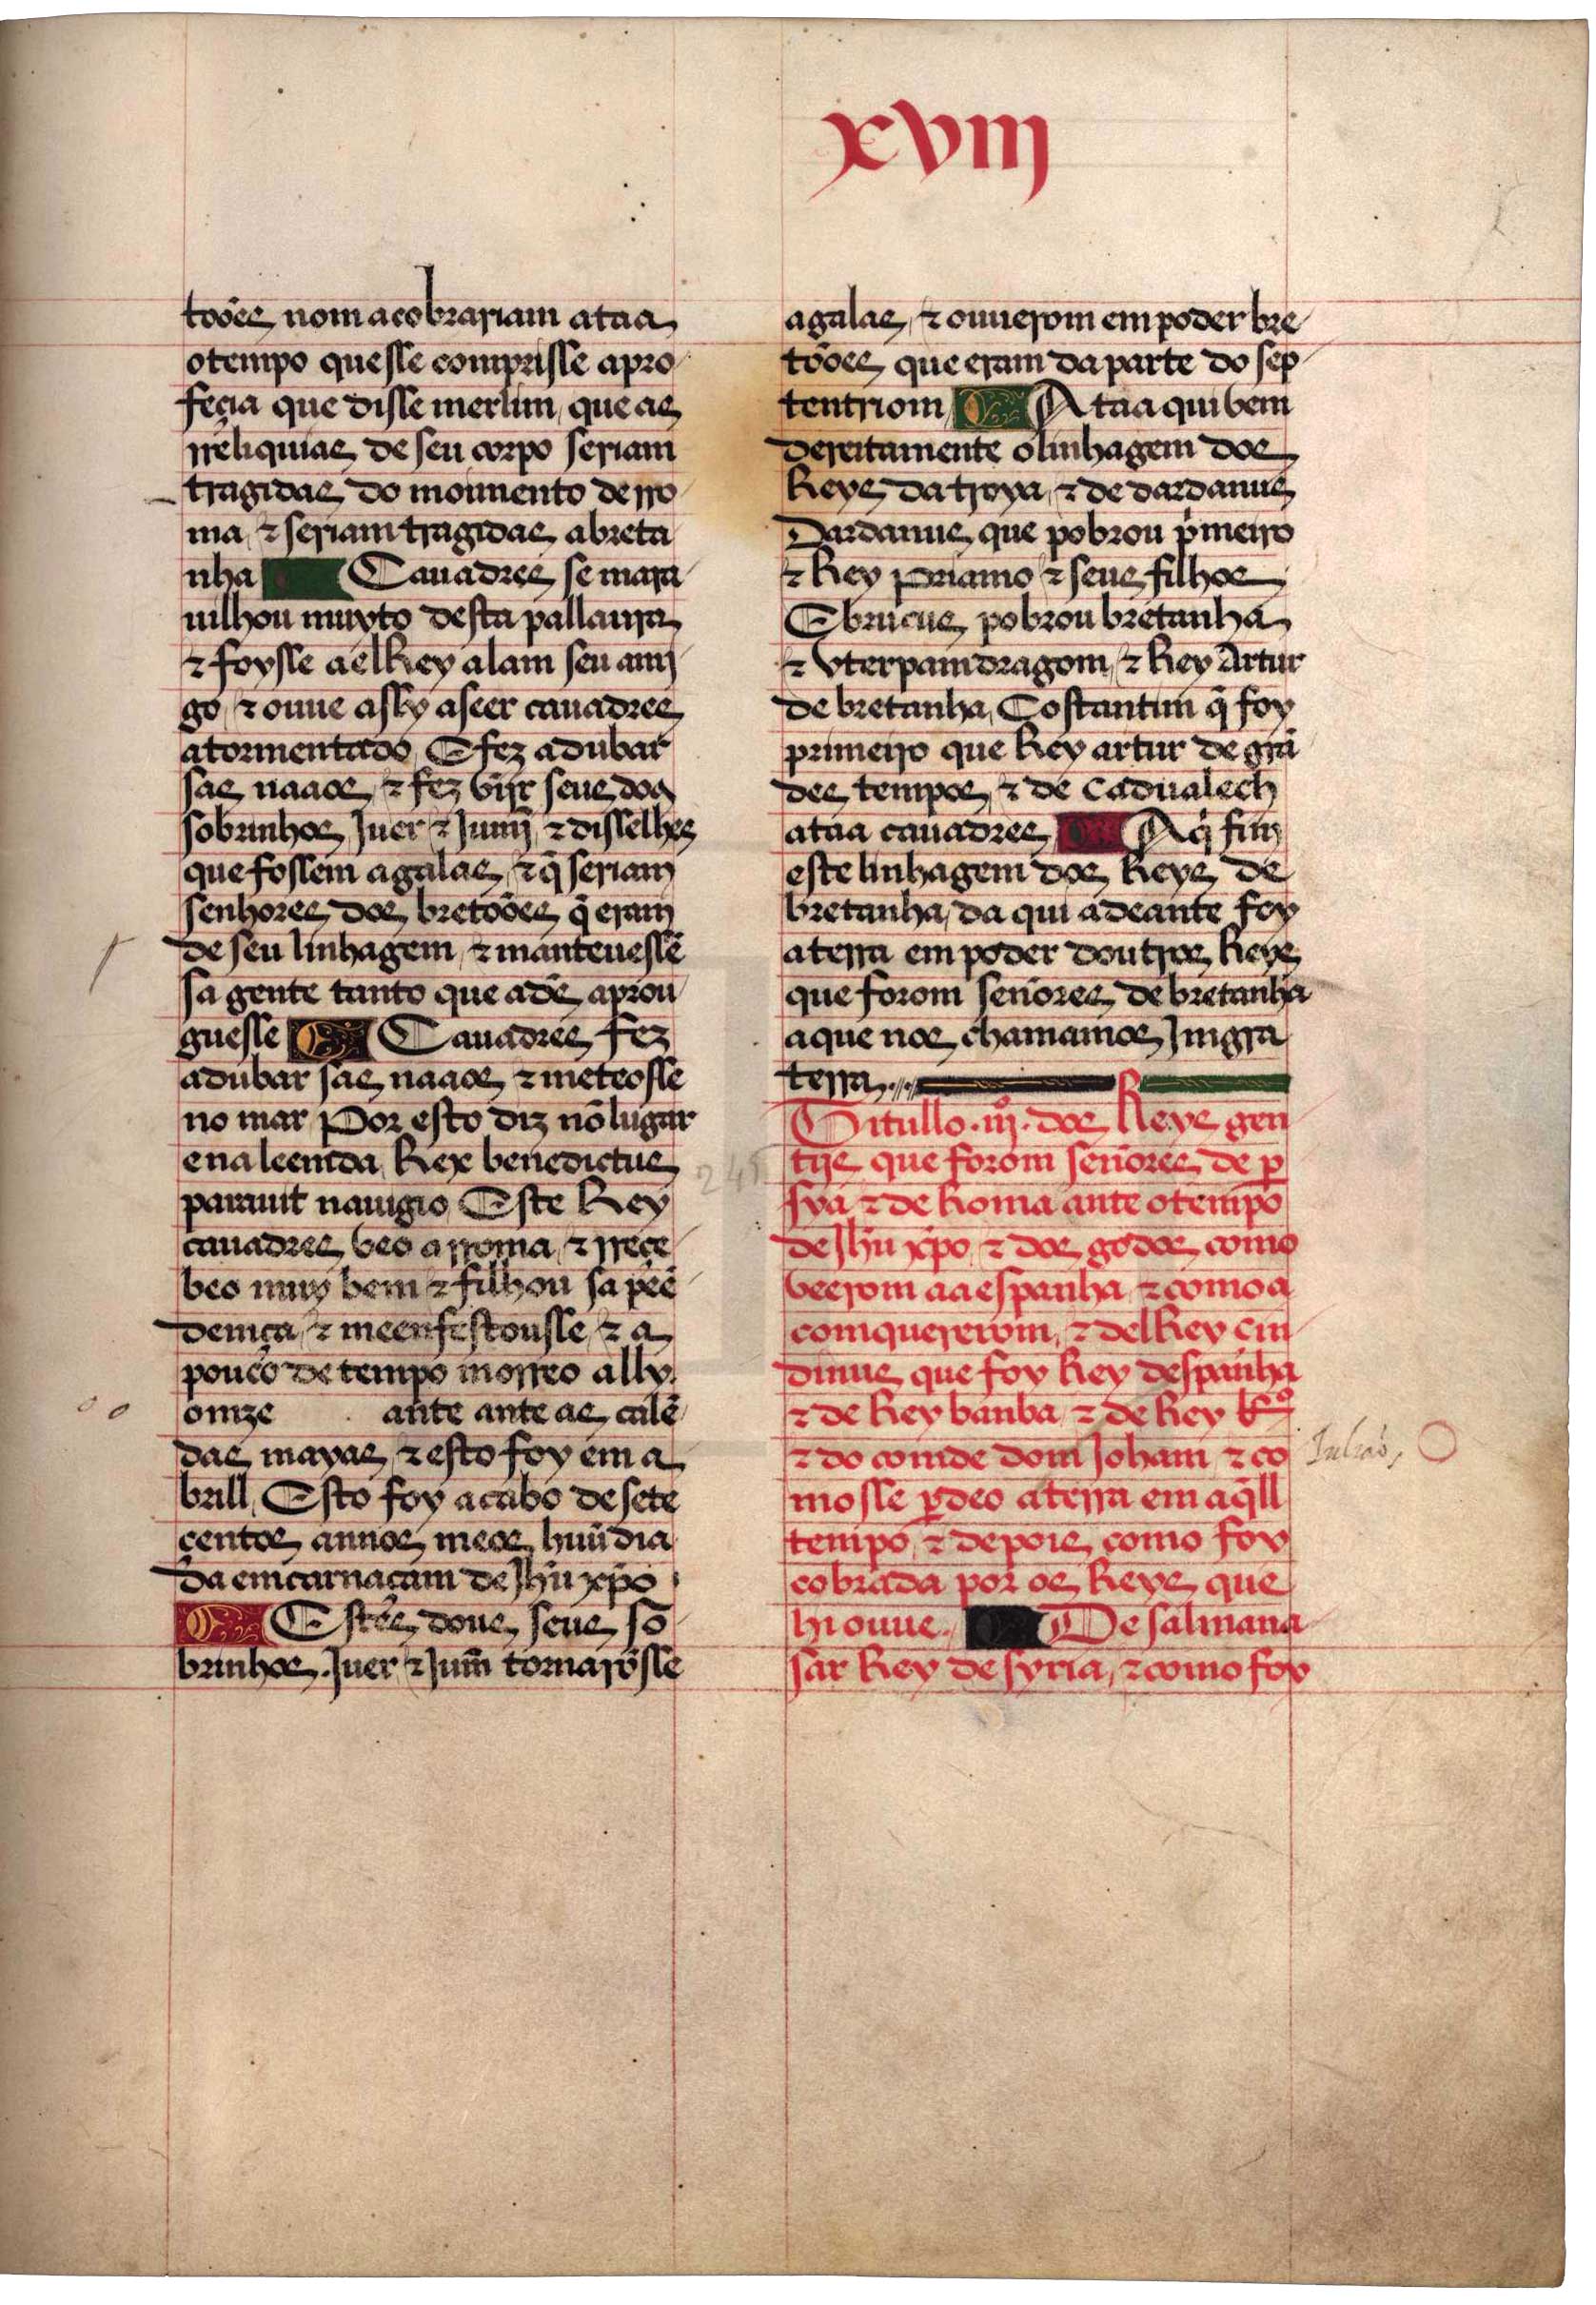 xviij
toões nom a cobrariam ataa
o tempo quesse comprisse a pro
feçia que disse merlim, que as
rreliquias de seu corpo seriam
tragidas do moimento de rro
ma, ⁊ seriam tragidas a breta
nha Cauadres se mara
uilhou muyto desta pallaura
⁊ foysse a elRey alam seu ami
go, ⁊ ouue assy a seer cauadres
atormentado, E fez adubar
sas naaos, ⁊ fez vijr seus dos
sobrinhos Juer ⁊ Juni, ⁊ disselhes
que fossem a galas, ⁊ q̃ seriam
senhores dos bretoões q̃ eram
de seu linhagem, ⁊ manteuessẽ
sa gente tanto que a dẽ aprou
guesse Cauadres fez
adubar sas naaos ⁊ meteosse
no mar Por esto diz nõ lugar
ena leenda Rex benedictus
parauit nauigio Este Rey
cauadres veo a rroma, ⁊ rreçe
beo muy bem ⁊ filhou sa pẽe
dença, ⁊ meenfestousse, ⁊ a
pouco de tempo morreo ally.
omze ante ante as calẽ
das mayas, ⁊ esto foy em a
brill, Esto foy acabo de sete
çentos annos meos huũ dia
da emcarnaçam de Jhũ xp̃o
Estes dous seus so
brinhos. Juer ⁊ Juni tornarõsse
a galas, ⁊ ouuerom em poder bre
tõoes que eram da parte do sep
tentriom, Ataa qui bem
dereitamente o linhagem dos
Reys da troya, ⁊ de dardanus
Dardanus que pobrou p̃meiro
⁊ Rey priamo ⁊ seus filhos
Ebrucus pobrou bretanha
⁊ vterpamdragom, ⁊ Rey Artur
de bretanha, Costantim q̃ foy
primeiro que Rey artur de grã
des tempos, ⁊ de Cadualech
ataa cauadres, Aq̃ fim
este linhagem dos Reys de
bretanha, da qui adeante foy
a terra em poder doutros Reys
que forom señores de bretanha
a que nos chamamos Jngra
terra.
Titullo. iijº. dos Reys gen
tijs que forom señores de p̱
sya ⁊ de Roma ante o tempo
de Jhũ xp̃o, ⁊ dos godos como
veerom aa espanha, ⁊ como a
comquererom, ⁊ delRey cin
dinus que foy Rey despanha
⁊ de Rey banba ⁊ de Rey Rº
⁊ do comde dom Joham ⁊ co
Julião,
mosse p̱deo a terra em aq̃ll
tempo, ⁊ depois como foy
cobrada por os Reys que
hi ouue. De salmana
sar Rey de syria, ⁊ como foy